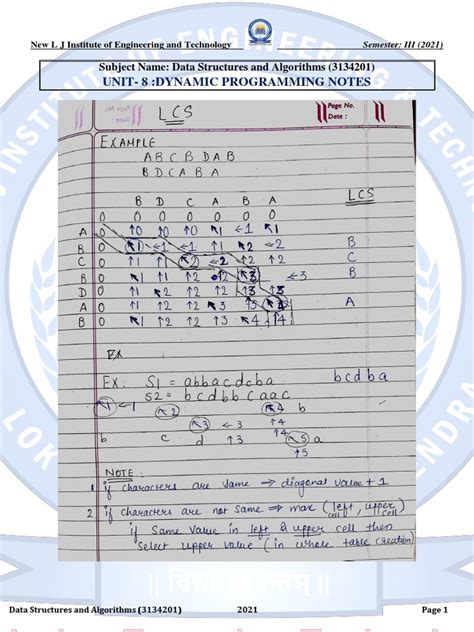 New L J Institute of Engineering and Technology Semester: III (2021)
Subject Name: Data Structures and Algorithms (3134201)
UNIT- 8 :DYNAMIC PROGRAMMING NOTES
LCS
Page No.
Date :
EXAMPLE
A B C B D A B
B D C A B A
B D C A B A LCS
0 0 0 0 0 0 0
A 0 ↑0 ↑0 ↑0 ↖1 ←1 ↖1
B 0 ↖1 ←1 ←1 ↑1 ↖2 ←2 B
C 0 ↑1 ↑1 ↖2 ←2 ↑2 ↑2 C
B 0 ↖1 ↑1 ↑2 ↑2 ↖3 ←3 B
D 0 ↑1 ↖2 ↑2 ↑2 ↑3 ↑3
A 0 ↑1 ↑2 ↑2 ↖3 ↑3 ↖4 A
B 0 ↖1 ↑2 ↑2 ↑3 ↖4 ↑4
EX
EX: S1 = abbacdcba bcdba
S2 = bcdbbcaac
↖1 ←1 ↖2 ↖4 b
↖3 ←3 ↑4
b c d ↑3 ↑4 ↖5 a
↑5
NOTE :
1 if characters are same → diagonal value + 1
2 if characters are not same → max (left cell, upper cell)
if same value in left & upper cell then
select upper value (in whole table creation)
Data Structures and Algorithms (3134201) 2021 Page 1